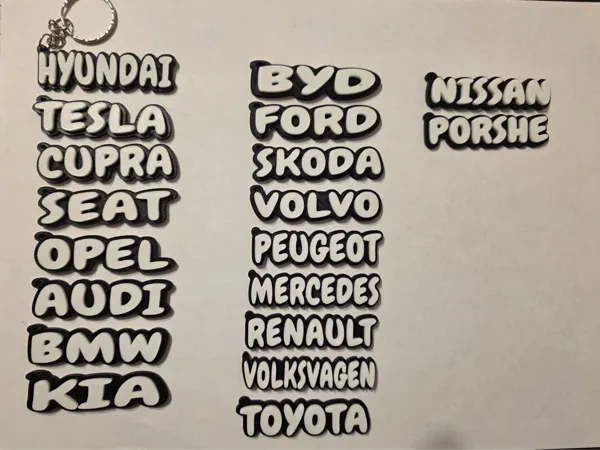 HYUNDAI
TESLA
CUPRA
SEAT
OPEL
AUDI
BMW
KIA
BYD
FORD
SKODA
VOLVO
PEUGEOT
MERCEDES
RENAULT
VOLKSVAGEN
TOYOTA
NISSAN
PORSHE